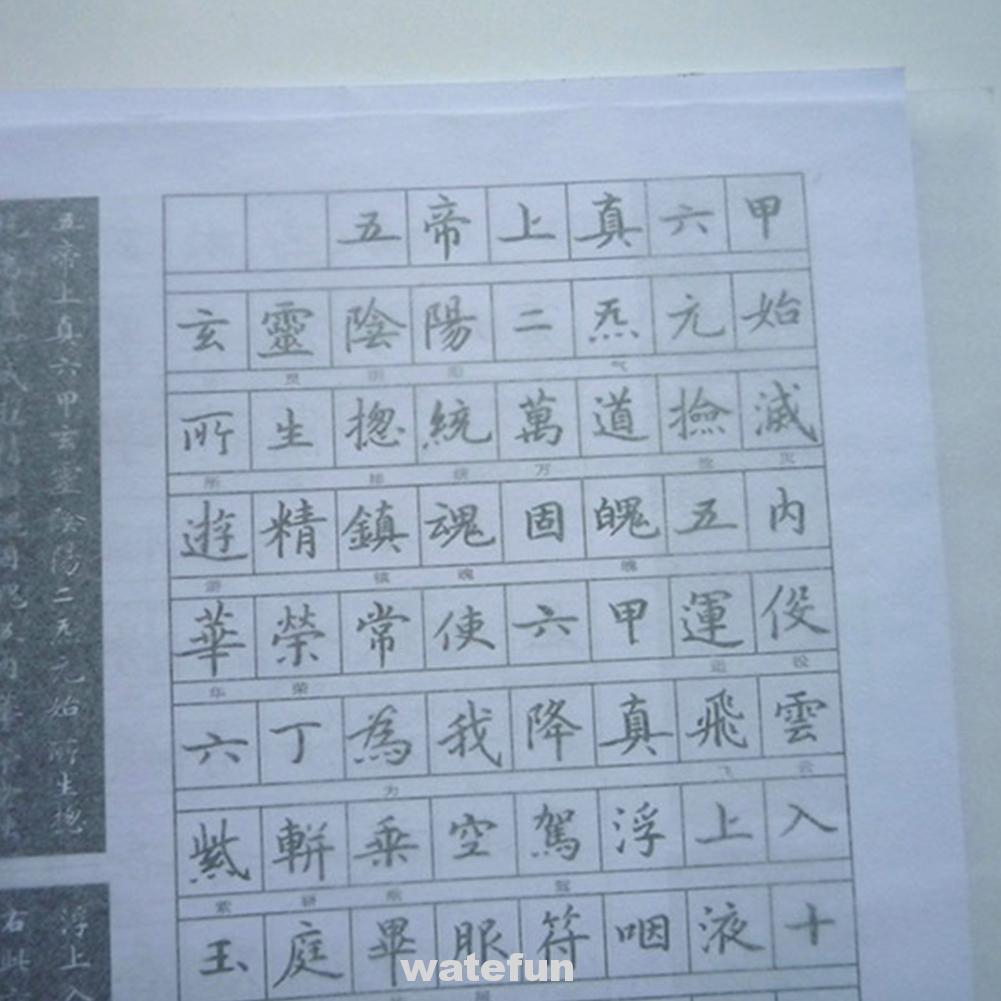 五帝上真六甲
玄靈陰陽二炁元始
灵阴阳气
所生揔統萬道撿滅
所总统万捡灭
遊精鎮魂固魄五内
游镇魂魄
華榮常使六甲運役
华荣运役
六丁為我降真飛雲
为飞云
紫軿乗空駕浮上入
紫軿乘驾
玉庭畢服符咽液十
五帝上真六甲玄靈陰陽二炁元始所生揔
浮上入
右此
watefun